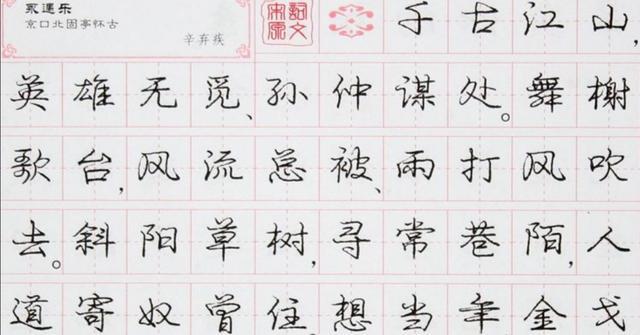 永遇乐
京口北固亭怀古
辛弃疾
千古江山,
英雄无觅、孙仲谋处。舞榭
歌台,风流总被、雨打风吹
去。斜阳草树,寻常巷陌,人
道寄奴曾住。想当年金戈